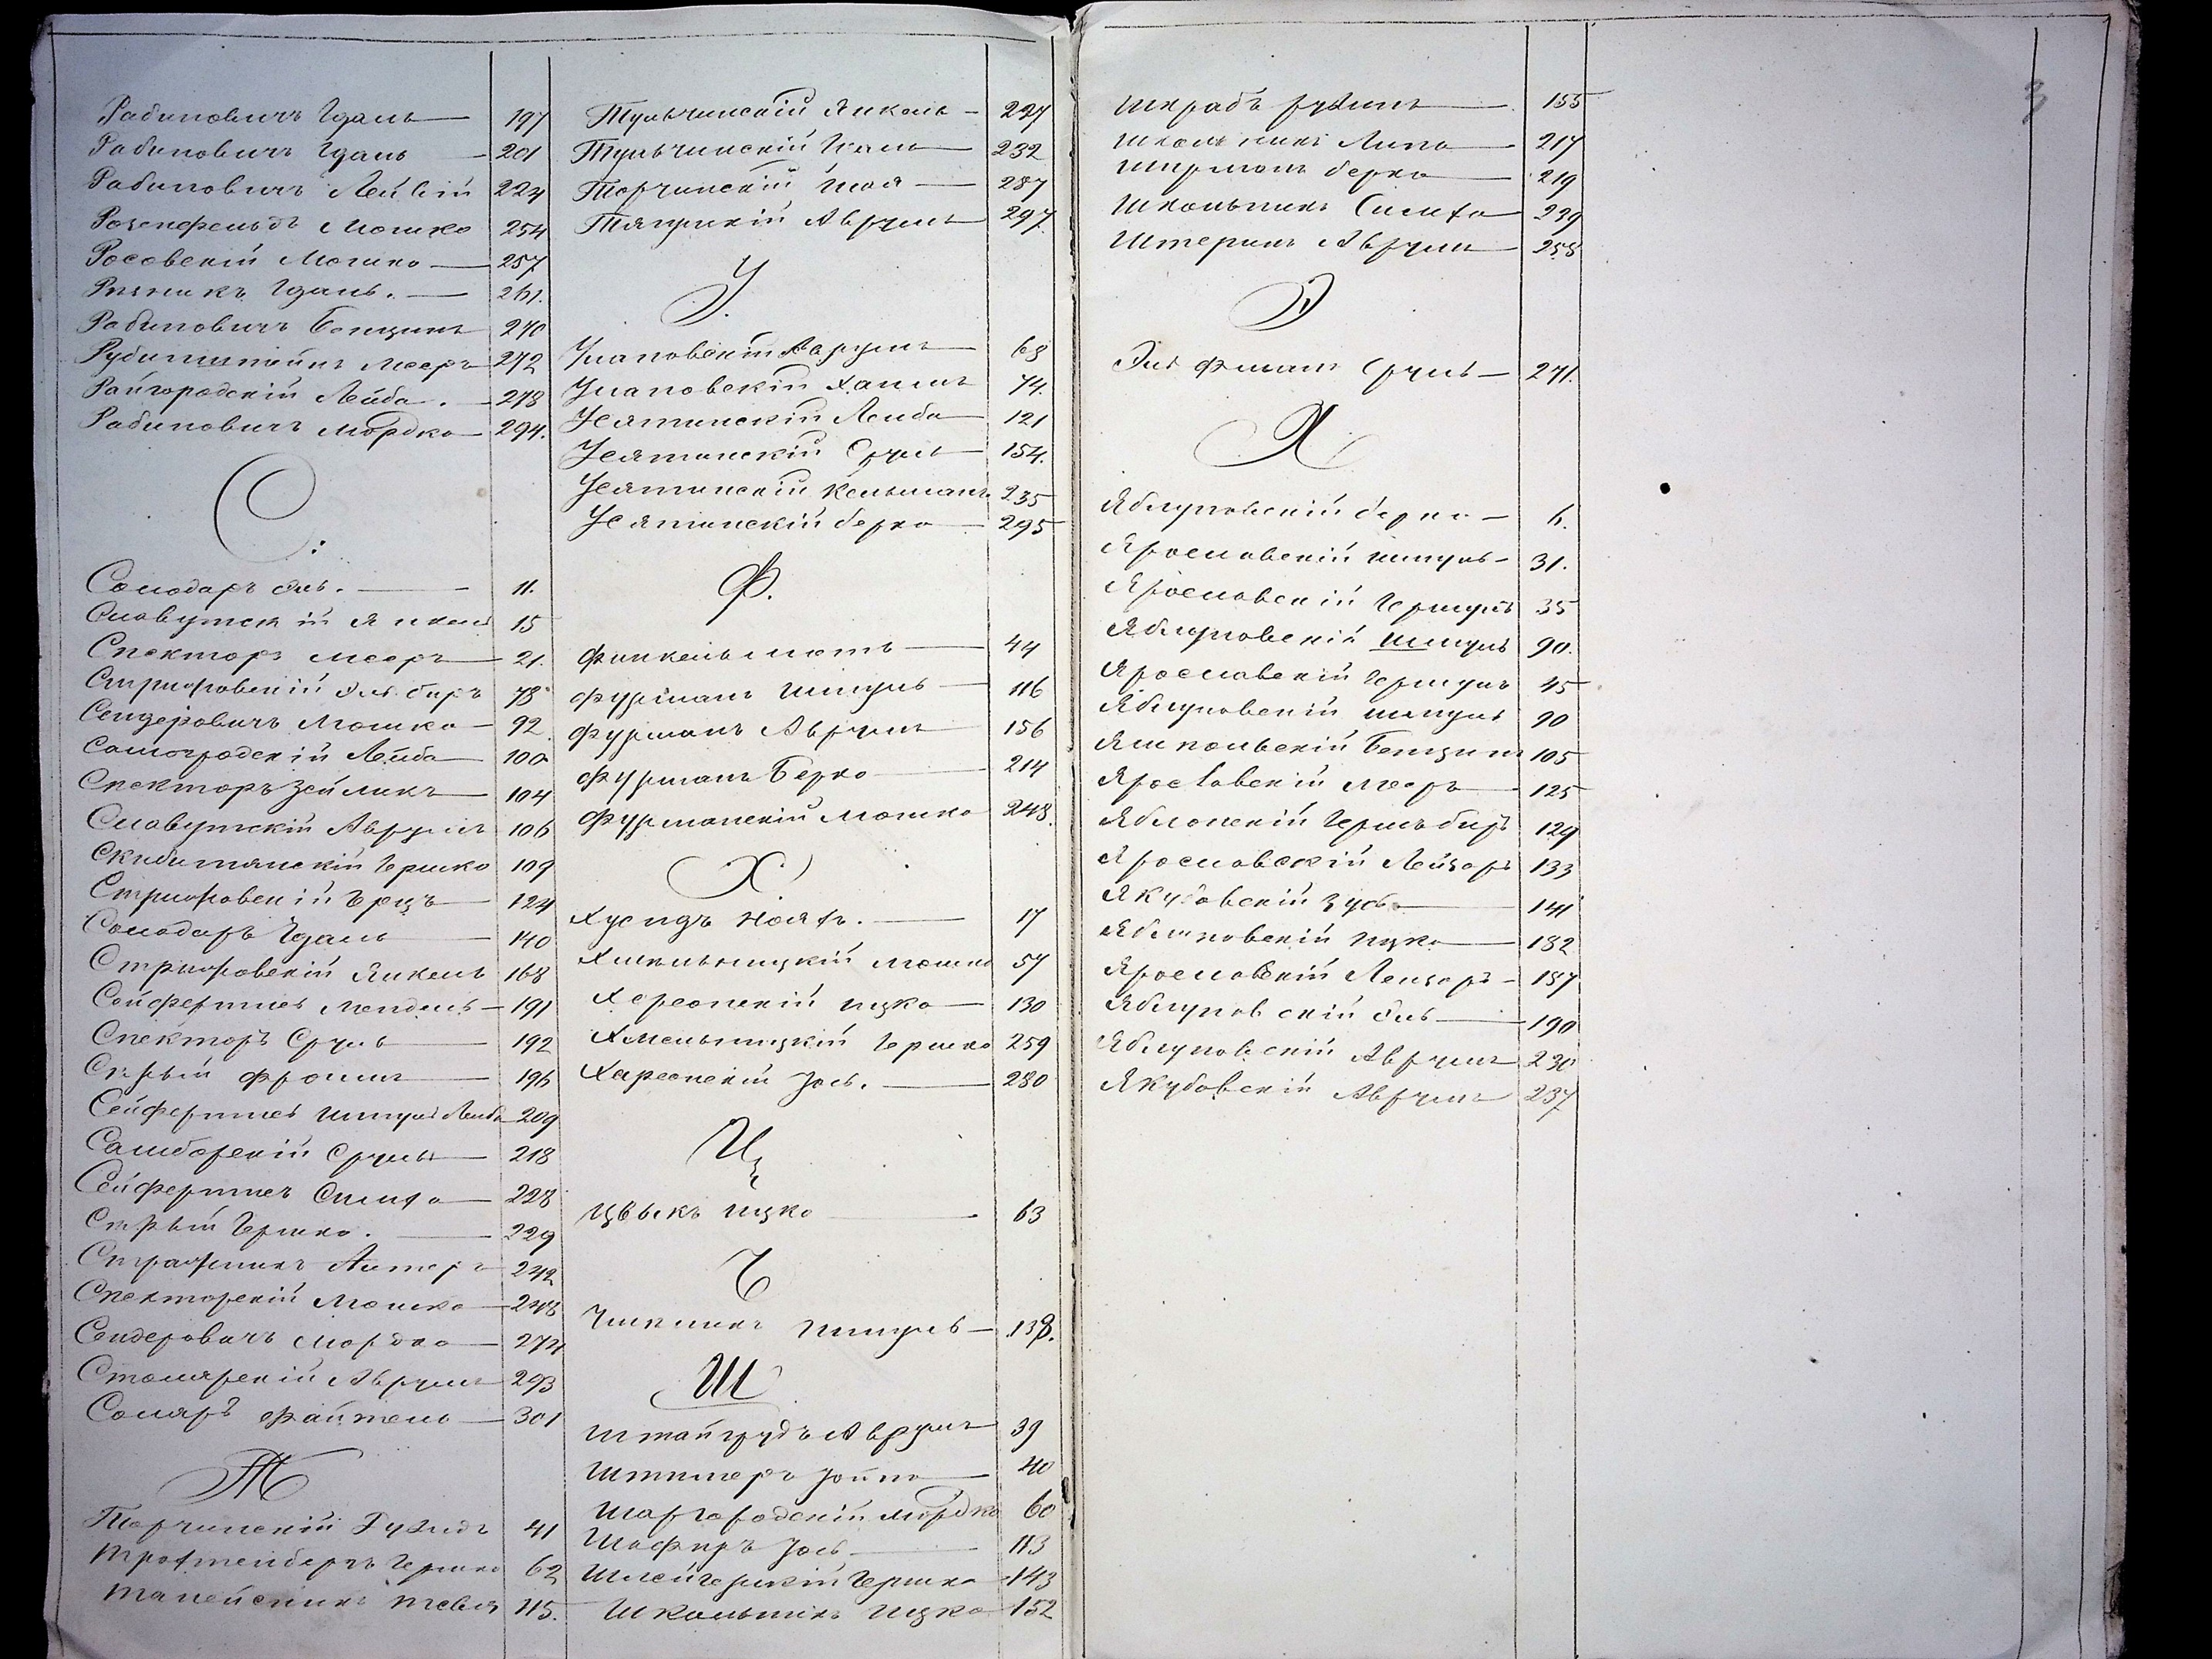 Рабиновичъ Идаль — 197
Рабиновичъ Идаль — 201
Рабиновичъ Лейвій 224
Розенфельдъ Мошко 254
Росовскій Мошко — 257
Резникъ Идаль. — 261.
Рабиновичъ Бенционъ 270
Рубинштейнъ Мееръ 272
Райгородскій Лейба. — 278
Рабиновичъ Мордко — 294.
С.
Солодарь Эль. — 11.
Славутскій Янкель 15
Спекторъ Мееръ — 21.
Стрижовскій Эль Беръ 78
Сендеровичъ Мошко — 92
Самогродскій Лейба — 100
Спекторъ Зейликъ — 104
Славутскій Аврумъ 106
Скибитянскій Гершко 109
Стрижовскій Герцъ — 124
Солодарь Идаль — 140
Стрижовскій Янкель 168
Сейфертисъ Мендель — 191
Спекторъ Сруль — 192
Старый Фроимъ — 196
Сейфертисъ Шмуль Лейба 209
Самборскій Сруль — 218
Сейфертисъ Симха — 228
Старый Гершко. — 229
Стражникъ Антеръ 242
Спекторскій Мошко — 248
Сендеровичъ Мордко — 274
Столярскій Аврумъ 293
Соляръ Файтель — 301
Т
Торчинскій Рувинъ 41
Трахтенбергъ Гершко 62
Тевья 115.
Тульчинскій Янкель — 227
Тульчинскій Идаль — 232
Торчинскій Шая — 287
Аврумъ 297.
У.
Улановскій Аврумъ — 68
Улановскій Хаимъ 74.
Устятинскій Лейба — 121
Устятинскій Сруль — 154.
Устятинскій Кельманъ 235
Устятинскій Берко — 295
Ф.
Финкель Мотъ — 44
Фурманъ Шмуль — 116
Фурманъ Аврумъ — 156
Фурманъ Берко — 214
Фурманскій Мошко 248.
Х.
Хусидъ Нояхъ. — 17
Хмельницкій Мошко 57
Херсонскій Ицко — 130
Хмельницкій Гершко 259
Харсонскій Іось. — 280
Ц
Цвыкъ Ицко — 63
Ч
Шмуль — 138.
Ш
Штайгрудъ Аврумъ 39
Іойна — 40
Шаргородскій Мордко 60
Шафиръ Іось — 113
Гершко — 143
Школьникъ Ицко — 152
Шкрабъ Рувинъ — 155
Школьникъ Липа — 217
Ширманъ Берко — 219
Школьникъ Симха — 239
Штеринъ Аврумъ — 258
Э
Сруль — 271.
Я
Яблуновскій Берко — 6.
Ярославскій Шмуль — 31.
Ярославскій Гершунъ 35
Яблуновскій Шмуль 90.
Ярославскій Гершунъ 45
Яблуновскій Шмуль 90
Ямпольскій Бенционъ 105
Ярославскій Мееръ — 125
Яблонскій Гершъ Беръ 129
Ярославскій Лейзоръ 133
Якубовскій Зусь — 141
Яблоновскій Ицко — 182
Ярославскій Лейзоръ — 187
Яблуновскій Эль — 190
Яблуновскій Аврумъ 230
Якубовскій Аврумъ 237